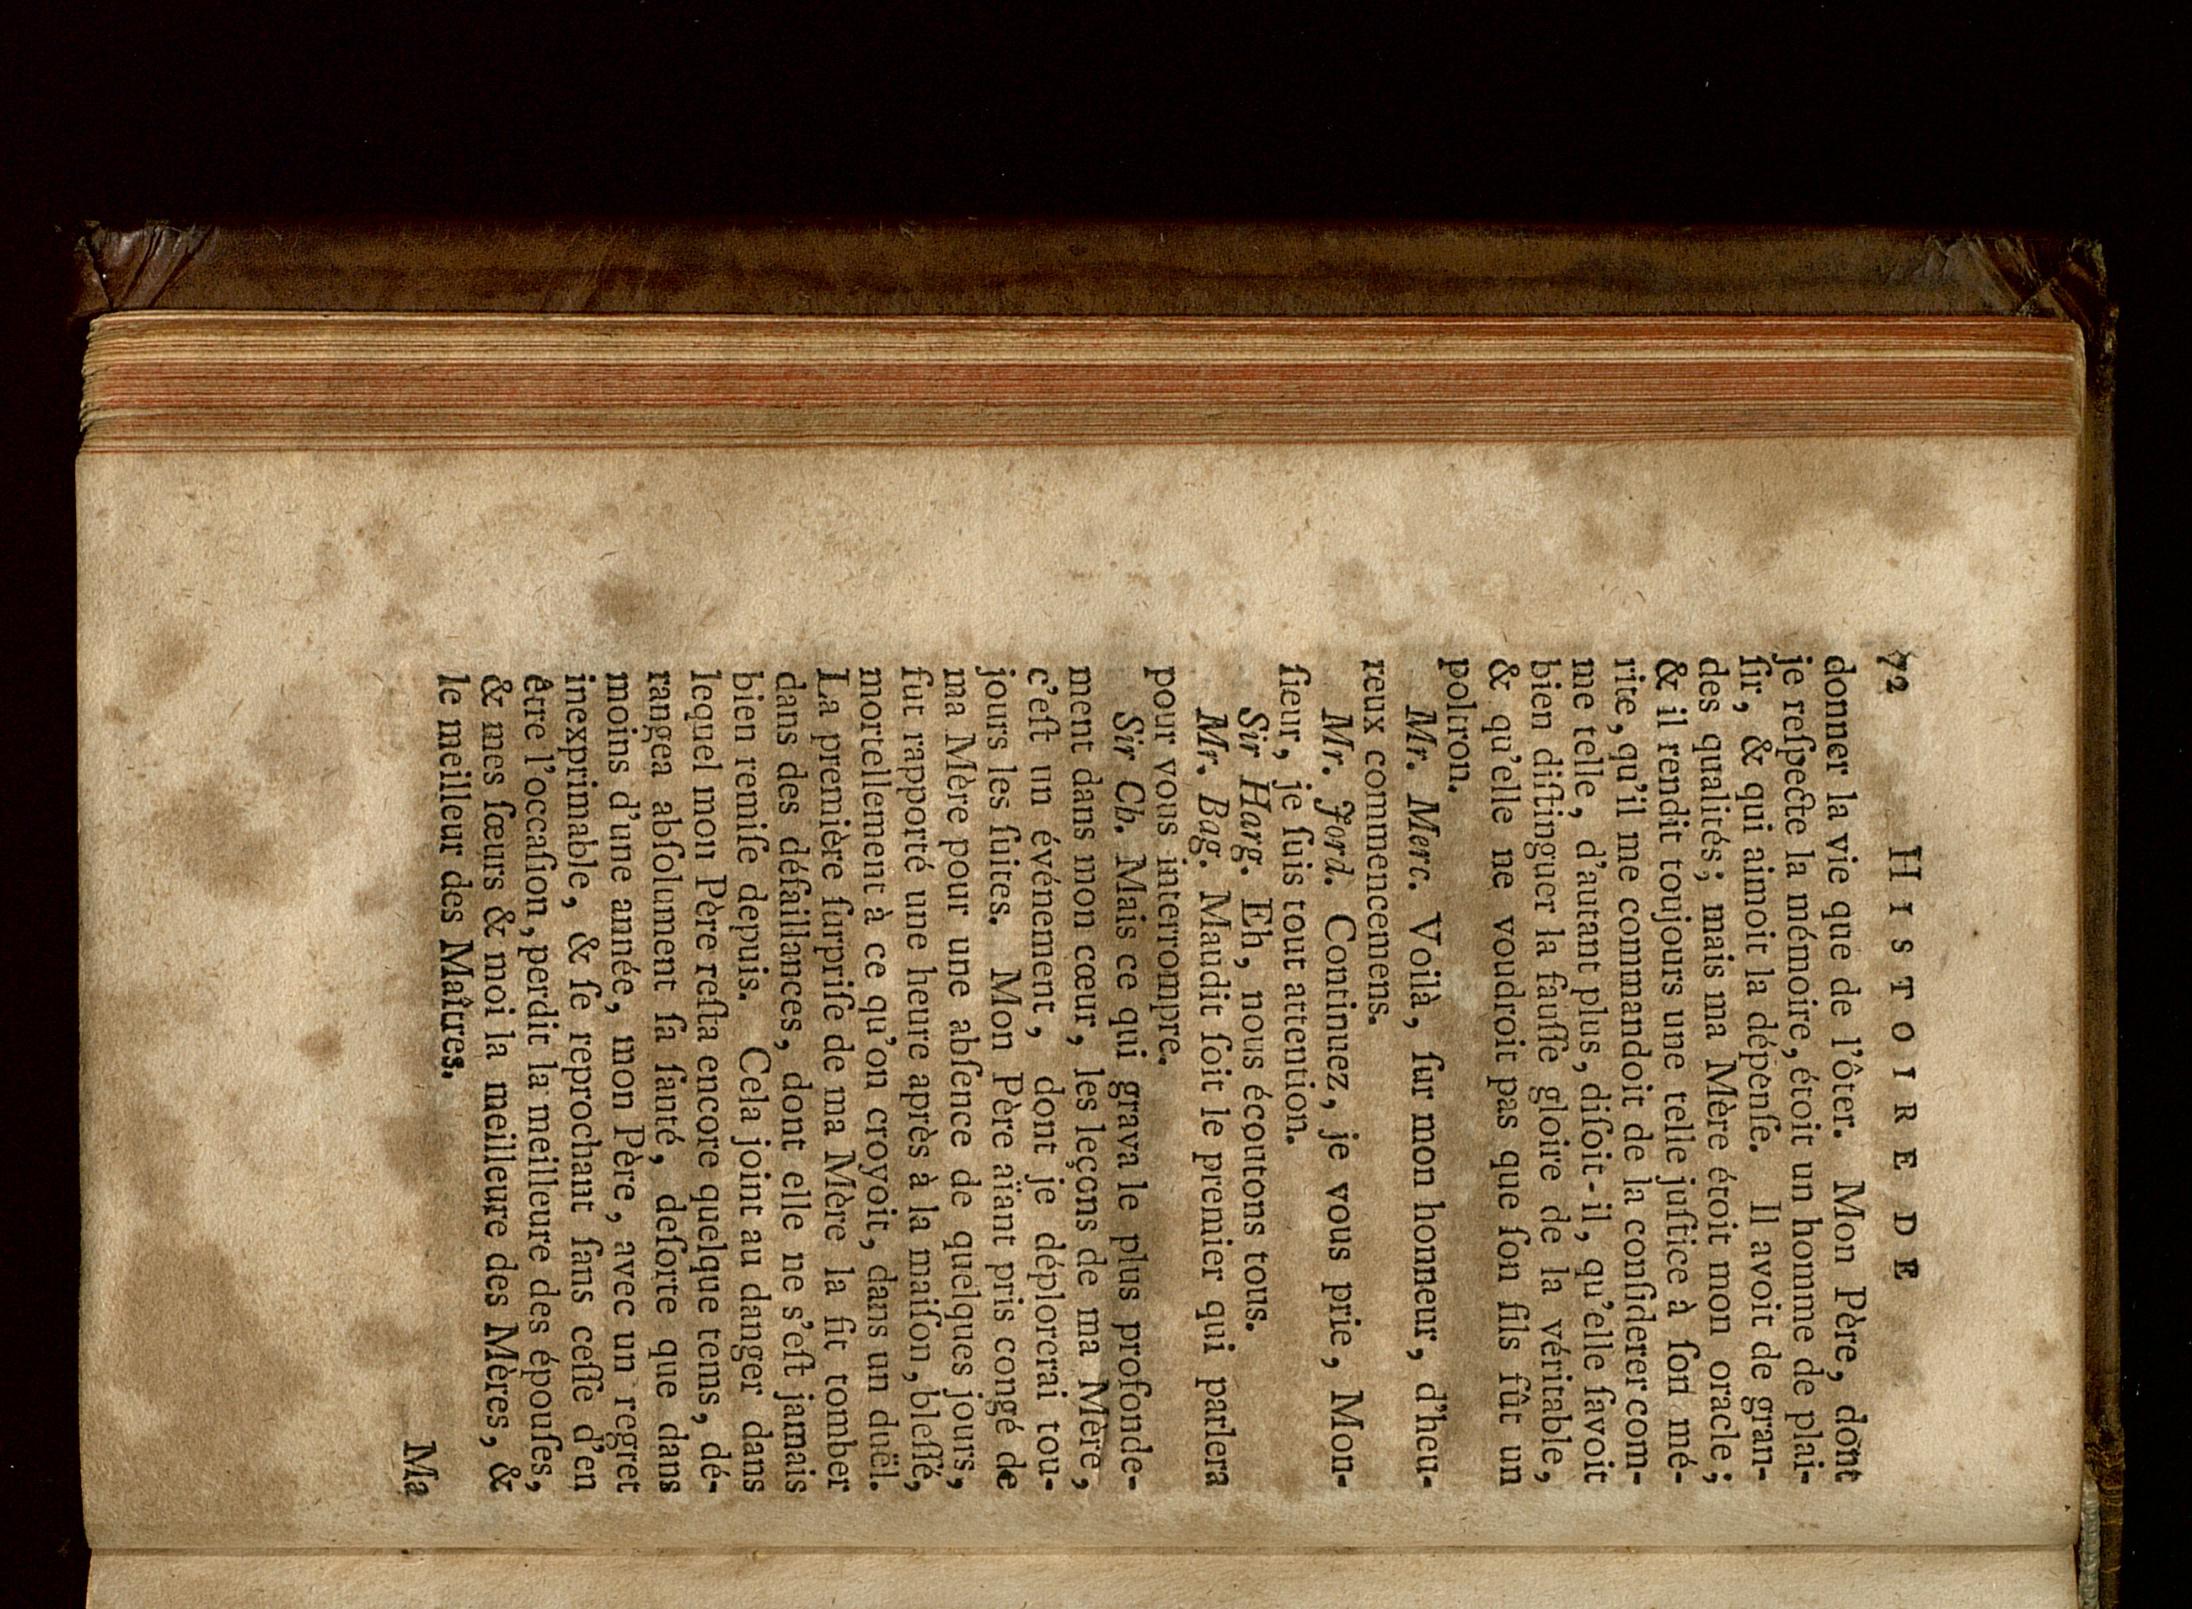 72 HISTOIRE DE
donner la vie que de l'ôter. Mon Père, dont
je reſpecte la mémoire, étoit un homme de plai-
ſir, & qui aimoit la dépenſe. Il avoit de gran-
des qualités; mais ma Mère étoit mon oracle;
& il rendit toujours une telle juſtice à ſon mé-
rite, qu'il me commandoit de la conſiderer com-
me telle, d'autant plus, diſoit-il, qu'elle ſavoit
bien diſtinguer la fauſſe gloire de la véritable,
& qu'elle ne voudroit pas que ſon fils fût un
poltron.
Mr. Merc. Voilà, ſur mon honneur, d'heu-
reux commencemens.
Mr. Jord. Continuez, je vous prie, Mon-
ſieur, je ſuis tout attention.
Sir Harg. Eh, nous écoutons tous.
Mr. Bag. Maudit ſoit le premier qui parlera
pour vous interrompre.
Sir Ch. Mais ce qui grava le plus profonde-
ment dans mon cœur, les leçons de ma Mère,
c'eſt un événement, dont je déplorerai tou-
jours les ſuites. Mon Père aïant pris congé de
ma Mère pour une abſence de quelques jours,
fut rapporté une heure après à la maiſon, bleſſé,
mortellement à ce qu'on croyoit, dans un duël.
La première ſurpriſe de ma Mère la fit tomber
dans des défaillances, dont elle ne s'eſt jamais
bien remiſe depuis. Cela joint au danger dans
lequel mon Père reſta encore quelque tems, dé-
rangea abſolument ſa ſanté, deſorte que dans
moins d'une année, mon Père, avec un regret
inexprimable, & ſe reprochant ſans ceſſe d'en
être l'occaſion, perdit la meilleure des épouſes,
& mes ſœurs & moi la meilleure des Mères, &
le meilleur des Maîtres.
Ma